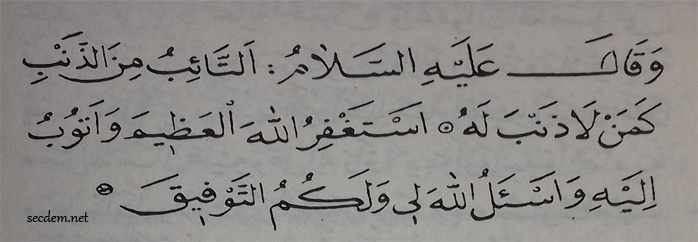 وَقَالَ عَلَيْهِ السَّلَامُ : اَلتَّائِبُ مِنَ الذَّنْبِ
كَمَنْ لَا ذَنْبَ لَهُ ۞ اَسْتَغْفِرُ اللّٰهَ الْعَظِيمَ وَاَتُوبُ
اِلَيْهِ وَاَسْئَلُ اللّٰهَ لِي وَلَكُمُ التَّوْفِيقَ ۞
secdem.net